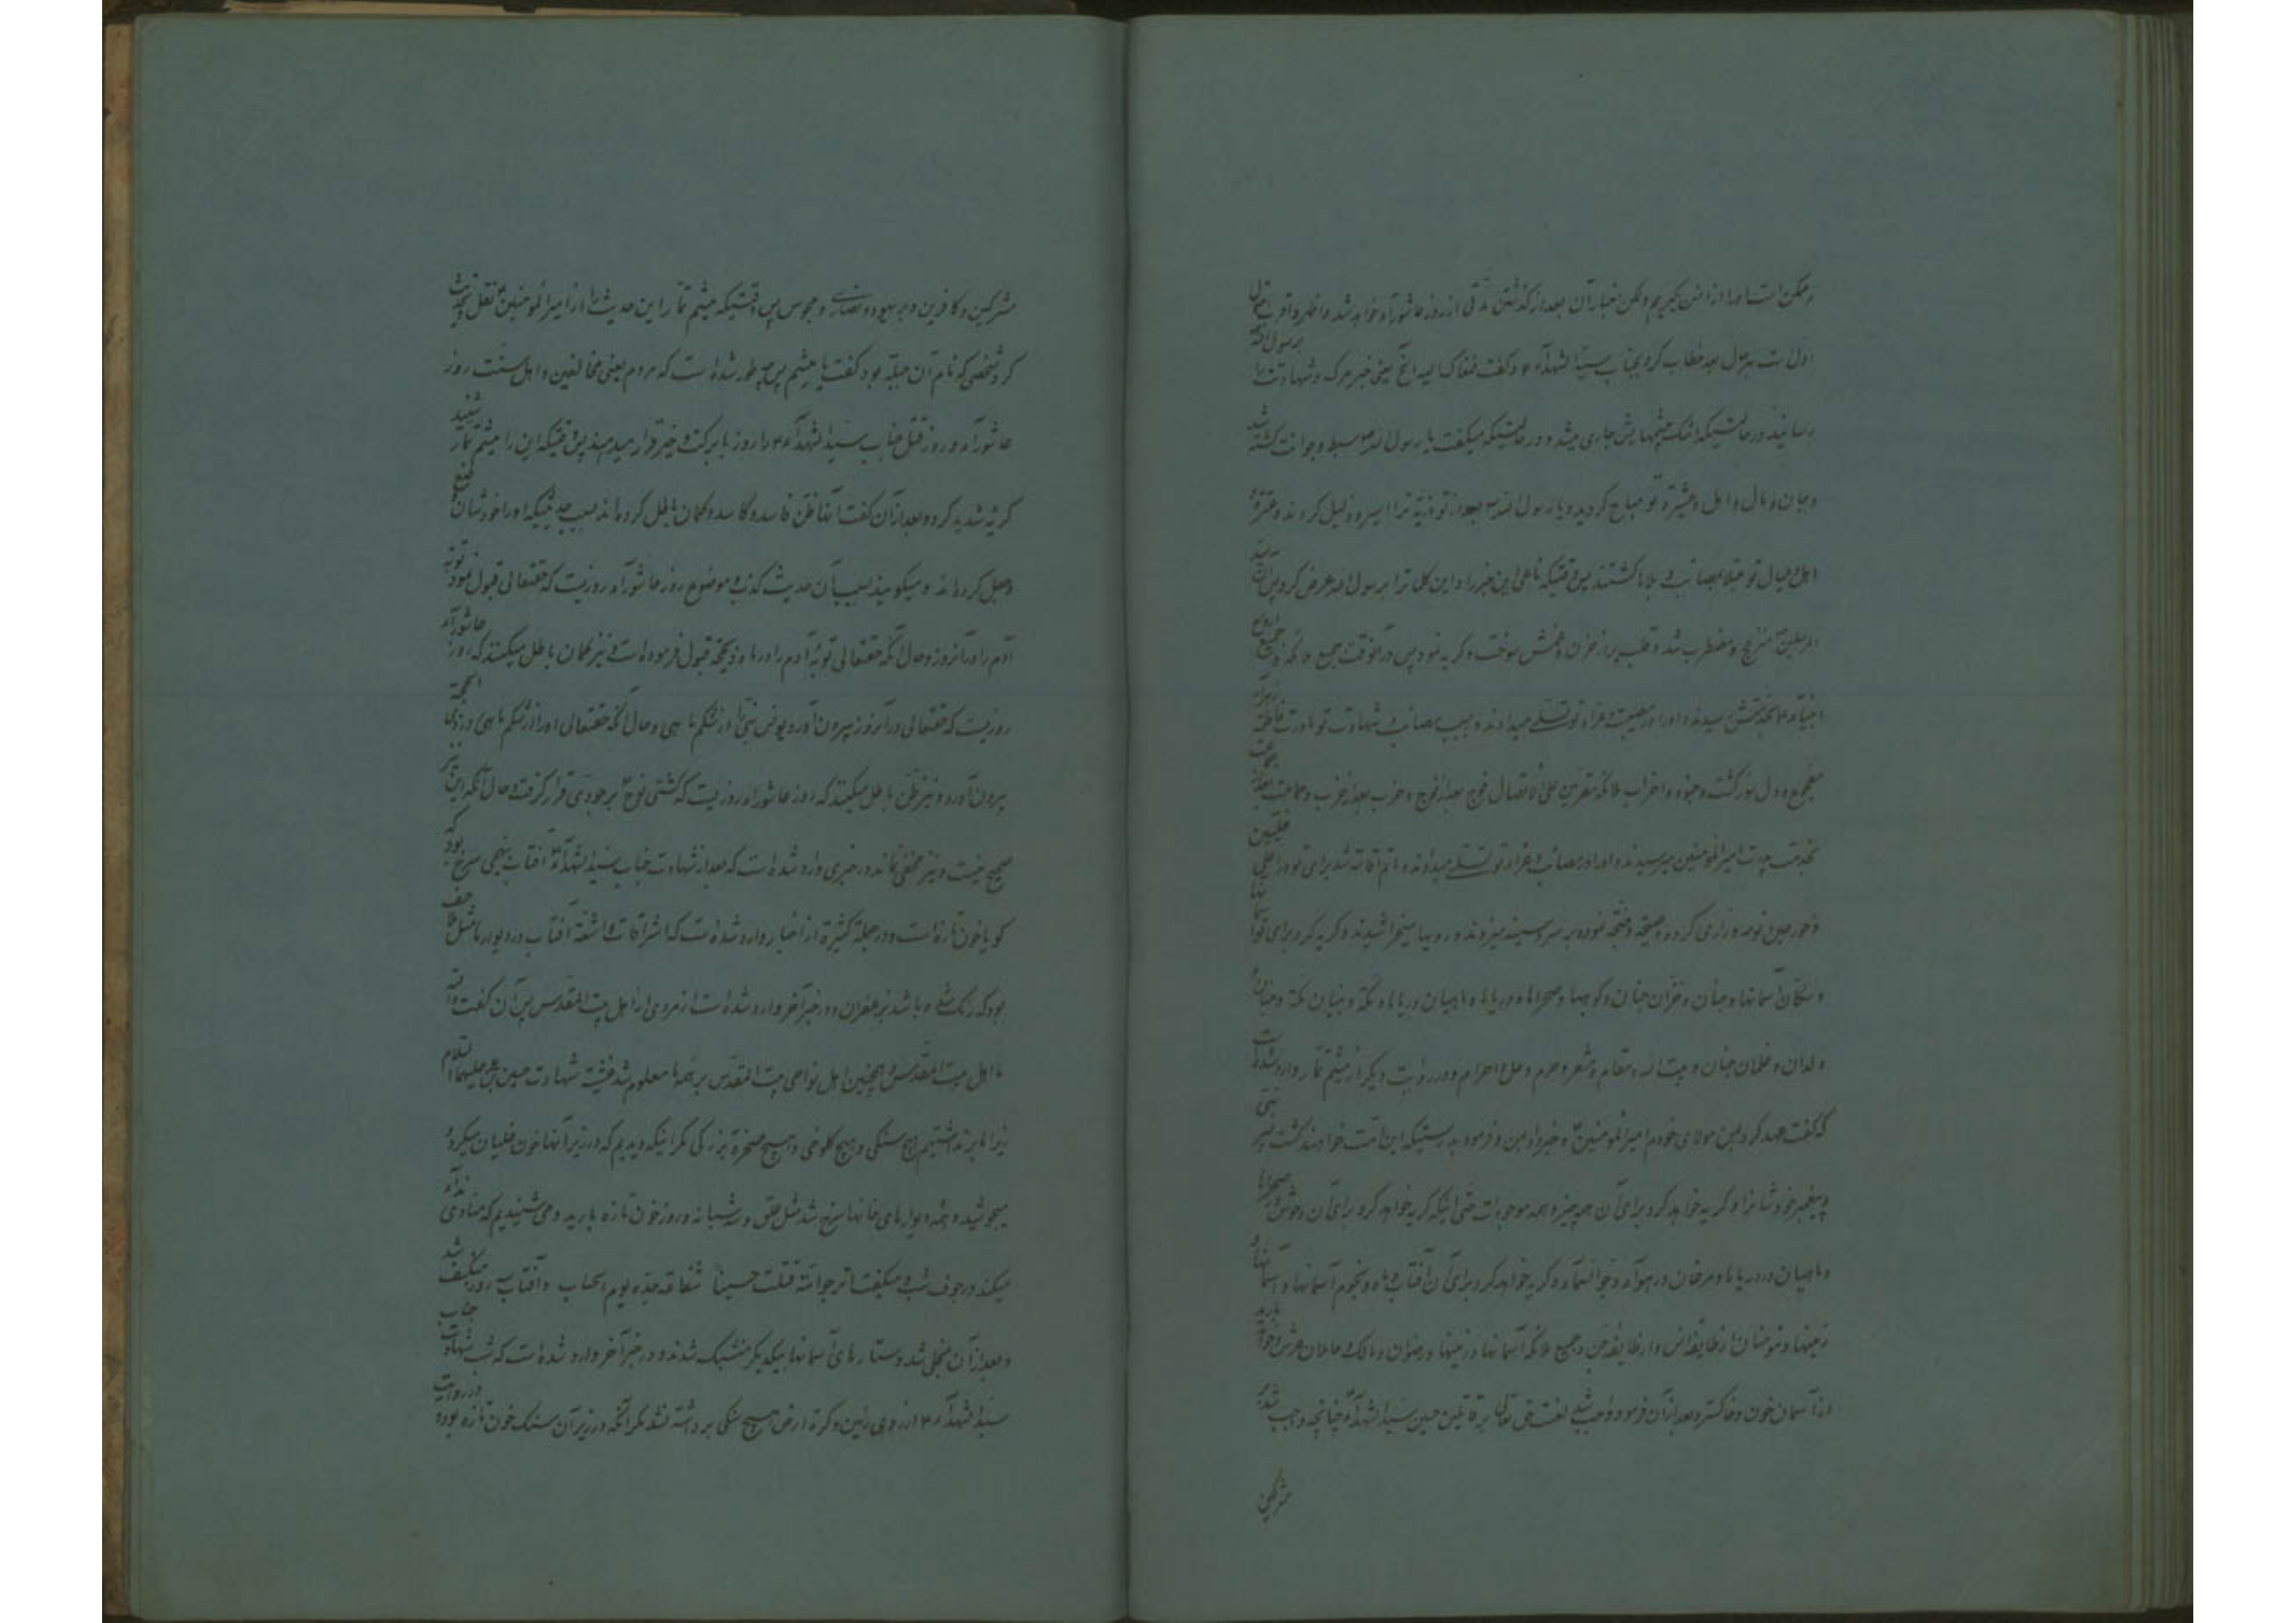 ممکن است او را از من بگیریم ولکن اخبار آن بعد از گذشتن مدتی از روز عاشورآء خواهد شد و اظهر و اقوی احتمال
اول است خطاب کرد بجناب سید الشهدآء و گفت فنعاک الیه الخ یعنی خبر مرگ و شهادت ترا برسول الله
رسانید در حالتیکه اشک چشمهایش جاری میشد و در حالتیکه میگفت یا رسول الله سبط و جوانت کشته شد
و جان و مال و اهل و عشیرۀ تو مباح گردید و یا رسول الله بعد از تو ذریۀ ترا اسیر و ذلیل کردند و عترة و
اهل و عیال تو مبتلا بمصائب و بلاها گشتند پس وقتیکه ناعی این خبر را و این کلماترا برسول الله عرض کرد پس آن سید
المرسلین منزعج و مضطرب شد و قلب از حزن و غمش سوخت و گریه نمود پس در آنوقت جمیع ملائکه و جمیع ارواح
انبیآء بخدمتش رسیدند و او را در مصیبت و عزاء تو تسلی میدادند و بسبب مصائب و شهادت تو مادرت فاطمه زهرآء
مفجوع و دل سوز گشت و جنود و احزاب ملائکه مقربین علی الاتصال فوج بعد از فوج و حزب بعد از حزب و جماعت بعد از جماعت
بخدمت پدرت امیر المومنین میرسیدند و او را در مصائب و عزاء تو تسلی میدادند و ماتم اقامه شد برای تو در اعلی علیین
و حور عین نوحه و زاری کرده و صیحه و ضجه نموده بر سر و سینه میزدند و رویها میخراشیدند و گریه کرد برای تو آسمانها
و سکان آسمانها و جنان و خزان جنان و کوهها و صحراها و دریاها و ماهیان دریاها و مکه و بنیان مکه و جنان و
ولدان و غلمان جنان و بیت الله و مقام و مشعر و حرم و حل و احرام و در روایت دیگر از میثم تمار وارد شده است
که گفت عهد کرد بمن مولای خودم امیر المومنین و خبر داد بمن و فرمود بدرستیکه این امت خواهند کشت پسر نبی
و پیغمبر خودشانرا و گریه خواهد کرد برای آن همه چیز و همه موجودات حتی اینکه گریه خواهد کرد برای آن وحوش در صحراها
و ماهیان در دریاها و مرغان در هوآء و جو السمآء و گریه خواهد کرد برای آن آفتاب و ماه و نجوم آسمانها و آسمانها و
زمینها و مومنان از طایفۀ انس و از طایفۀ جن و جمیع ملائکه آسمانها و زمینها و رضوان و مالک و حاملان عرش و خواهد بارید
از آسمان خون و خاکستر و بعد از آن فرمود واجب شد لعنت حق تعالی بر قاتلین حسین سید الشهدآء چنانچه واجب شد بر
مشرکین
مشرکین و کافرین و بر یهود و نصاری و مجوس پس وقتیکه میثم تمار این حدیث را از امیر المومنین نقل و تحدیث
کرد شخصی که نام آن جبله بود گفت یا میثم پس چطور شده است که مردم یعنی مخالفین و اهل سنت روز
عاشورآء و روز قتل جناب سید الشهدآء را روز با برکت و خیر قرار میدهند پس وقتیکه این را میثم تمار شنید
گریه شدید کرد و بعد از آن گفت آنها ظن فاسد و کاسد و گمان باطل کرده اند بسبب حدیثیکه او را خودشان وضع و
جعل کرده اند و میگویند بسبب آن حدیث کذب و موضوع روز عاشورآء روزیست که حقتعالی قبول نمود توبۀ
آدم را در آنروز و حال آنکه حقتعالی توبۀ آدم را در ماه ذیحجه قبول فرموده است و نیز گمان باطل میکنند که روز عاشورآء
روزیست که حقتعالی در آنروز بیرون آورد یونس نبی را از شکم ماهی و حال آنکه حقتعالی او را از شکم ماهی در ذی الحجة
بیرون آورد و نیز ظن باطل میکنند که روز عاشورآء روزیست که کشتی نوح بر جودی قرار گرفت و حال آنکه این نیز
صحیح نیست و نیز مخفی نماند در خبری وارد شده است که بعد از شهادت جناب سید الشهدآء آفتاب بنهجی سرخ بود که
گویا خون تازه است و در جمله کثیرة از اخبار وارد شده است که اشراقات و اشعۀ آفتاب در دیوارها مثل ملاحف
بود که رنگ شده باشد بزعفران و در خبر آخر وارد شده است از مردی از اهل بیت المقدس پس آن گفت والله
ما اهل بیت المقدس و همچنین اهل نواحی بیت المقدس بر همۀ ما معلوم شد عشیۀ شهادت حسین بن علی علیهما السلام
زیرا ما بر نداشتیم هیچ سنگی و هیچ کلوخی و هیچ صخرۀ بزرگی مگر اینکه دیدیم که در زیر آنها خون غلیان میکرد و
میجوشید و همه دیوارهای خانها سرخ شد مثل علق و سه شبانه روز خون تازه بارید و می شنیدیم که منادی ندآء
میکند در جوف شب و میگفت اترجو امة قتلت حسینا شفاعة جده یوم الحساب و آفتاب سه روز منکسف شد
و بعد از آن منجلی شد و ستارهای آسمانها بیکدیگر منشبک شدند و در خبر آخر وارد شده است که شب شهادت جناب
سید الشهدآء از روی زمین و کرۀ ارض هیچ سنگی برداشته نشد مگر آنکه در زیر آن سنگ خون تازه بود و در روایت